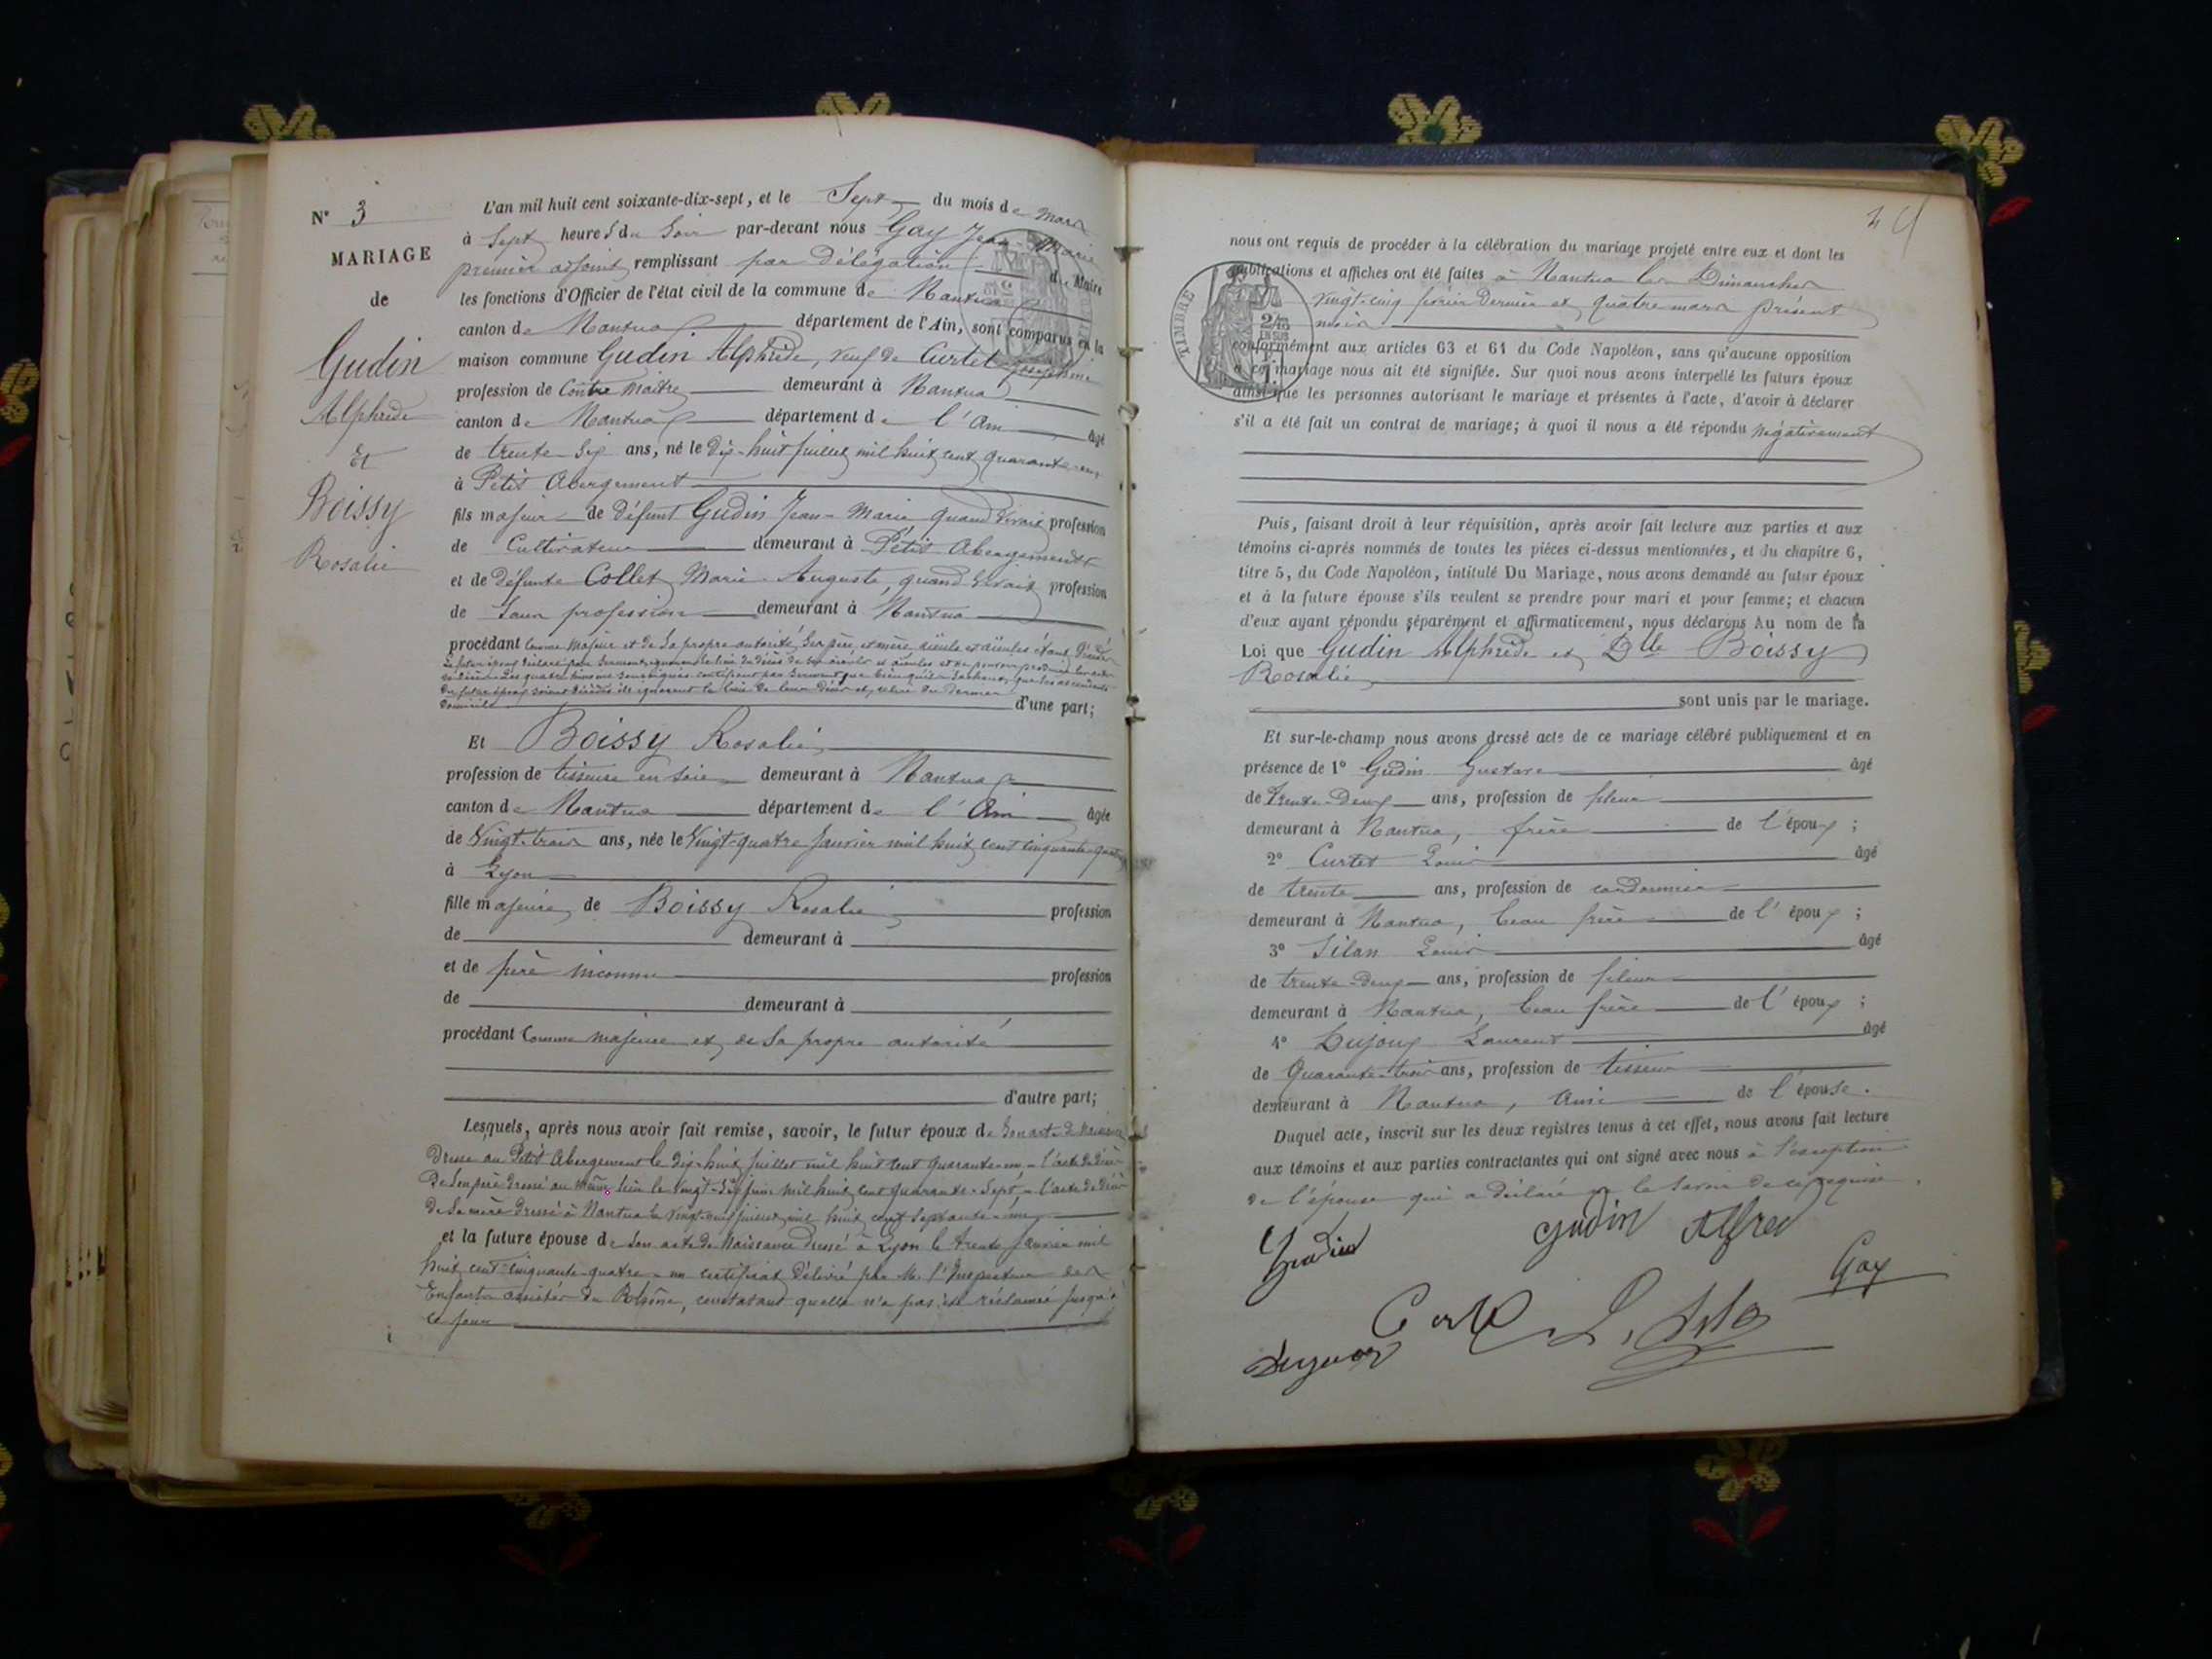 N° 3
MARIAGE
de
Gudin
Alphrède
Et
Boissy
Rosalie
L'an mil huit cent soixante-dix-sept, et le Sept du mois de Mars
à Sept heures du Soir par-devant nous Gay Jean-Marie
premier adjoint remplissant par délégation du Maire
les fonctions d'Officier de l'état civil de la commune de Nantua
canton de Nantua département de l'Ain, sont comparus en la
maison commune Gudin Alphrède, veuf de Curtet Joséphine
profession de Contre Maître demeurant à Nantua
canton de Nantua département de l'Ain âgé
de trente-six ans, né le Dix-huit juillet mil huit cent quarante-un
à Petit Abergement
fils majeur de défunt Gudin Jean-Marie quand vivait profession
de Cultivateur demeurant à Petit Abergement
et de défunte Collet Marie-Auguste, quand vivait profession
de Sans profession demeurant à Nantua
procédant comme majeur et de Sa propre autorité Ses père et mère aïeuls et aïeules étant Décédés
Le futur époux déclare par Serment ignorer le lieu du décès de Ses aïeuls et aïeules et ne pouvoir produire
de décès. Les quatre témoins certifient par Serment que bien qu'ils Sachent que les ascendants
du futur époux soient décédés ils ignorent le lieu de leur décès et celui du dernier
domicile d'une part;
Et Boissy Rosalie
profession de tisseuse en Soie demeurant à Nantua
canton de Nantua département de l'Ain âgée
de Vingt-trois ans, née le Vingt-quatre Janvier mil huit cent cinquante-quatre
à Lyon
fille majeure de Boissy Rosalie profession
de demeurant à
et de père inconnu profession
de demeurant à
procédant Comme majeure et de Sa propre autorité
d'autre part;
Lesquels, après nous avoir fait remise, savoir, le futur époux de Son acte de Naissance
Dressé au Petit Abergement le dix-huit juillet mil huit cent quarante-un - l'acte de décès
De Son père dressé au même lieu le Vingt-Six juin mil huit cent quarante-Sept, - l'acte de décès
de Sa mère Dressé à Nantua le Vingt juillet mil huit cent Septante-un
et la future épouse de Son acte de Naissance dressé à Lyon le trente Janvier mil
huit cent cinquante-quatre - un certificat délivré par M. l'Inspecteur des
Enfants assistés du Rhône, constatant quelle n'a pas été réclamée jusqu'à
ce jour
nous ont requis de procéder à la célébration du mariage projeté entre eux et dont les
publications et affiches ont été faites à Nantua les Dimanches
vingt-cinq février dernier et quatre mars présent
mois
conformément aux articles 63 et 64 du Code Napoléon, sans qu'aucune opposition
à ce mariage nous ait été signifiée. Sur quoi nous avons interpellé les futurs époux
ainsi que les personnes autorisant le mariage et présentes à l'acte, d'avoir à déclarer
s'il a été fait un contrat de mariage; à quoi il nous a été répondu négativement
TIMBRE
2/10
EN SUS
Puis, faisant droit à leur réquisition, après avoir fait lecture aux parties et aux
témoins ci-après nommés de toutes les pièces ci-dessus mentionnées, et du chapitre 6,
titre 5, du Code Napoléon, intitulé Du Mariage, nous avons demandé au futur époux
et à la future épouse s'ils veulent se prendre pour mari et pour femme; et chacun
d'eux ayant répondu séparément et affirmativement, nous déclarons Au nom de la
Loi que Gudin Alphrède et Dlle Boissy
Rosalie
sont unis par le mariage.
Et sur-le-champ nous avons dressé acte de ce mariage célébré publiquement et en
présence de 1° Gudin Gustave âgé
de Trente-Deux ans, profession de fileur
demeurant à Nantua, frère de l'époux;
2° Curtet Louis âgé
de trente ans, profession de cordonnier
demeurant à Nantua, beau frère de l'époux;
3° Silan Louis âgé
de trente-deux ans, profession de fileur
demeurant à Nantua, beau frère de l'époux;
4° Dujoux Laurent âgé
de Quarante-trois ans, profession de tisseur
demeurant à Nantua, ami de l'épouse.
Duquel acte, inscrit sur les deux registres tenus à cet effet, nous avons fait lecture
aux témoins et aux parties contractantes qui ont signé avec nous à l'exception
de l'épouse qui a déclaré ne le Savoir de ce requise.
Gudin Gudin Alfred
Gay